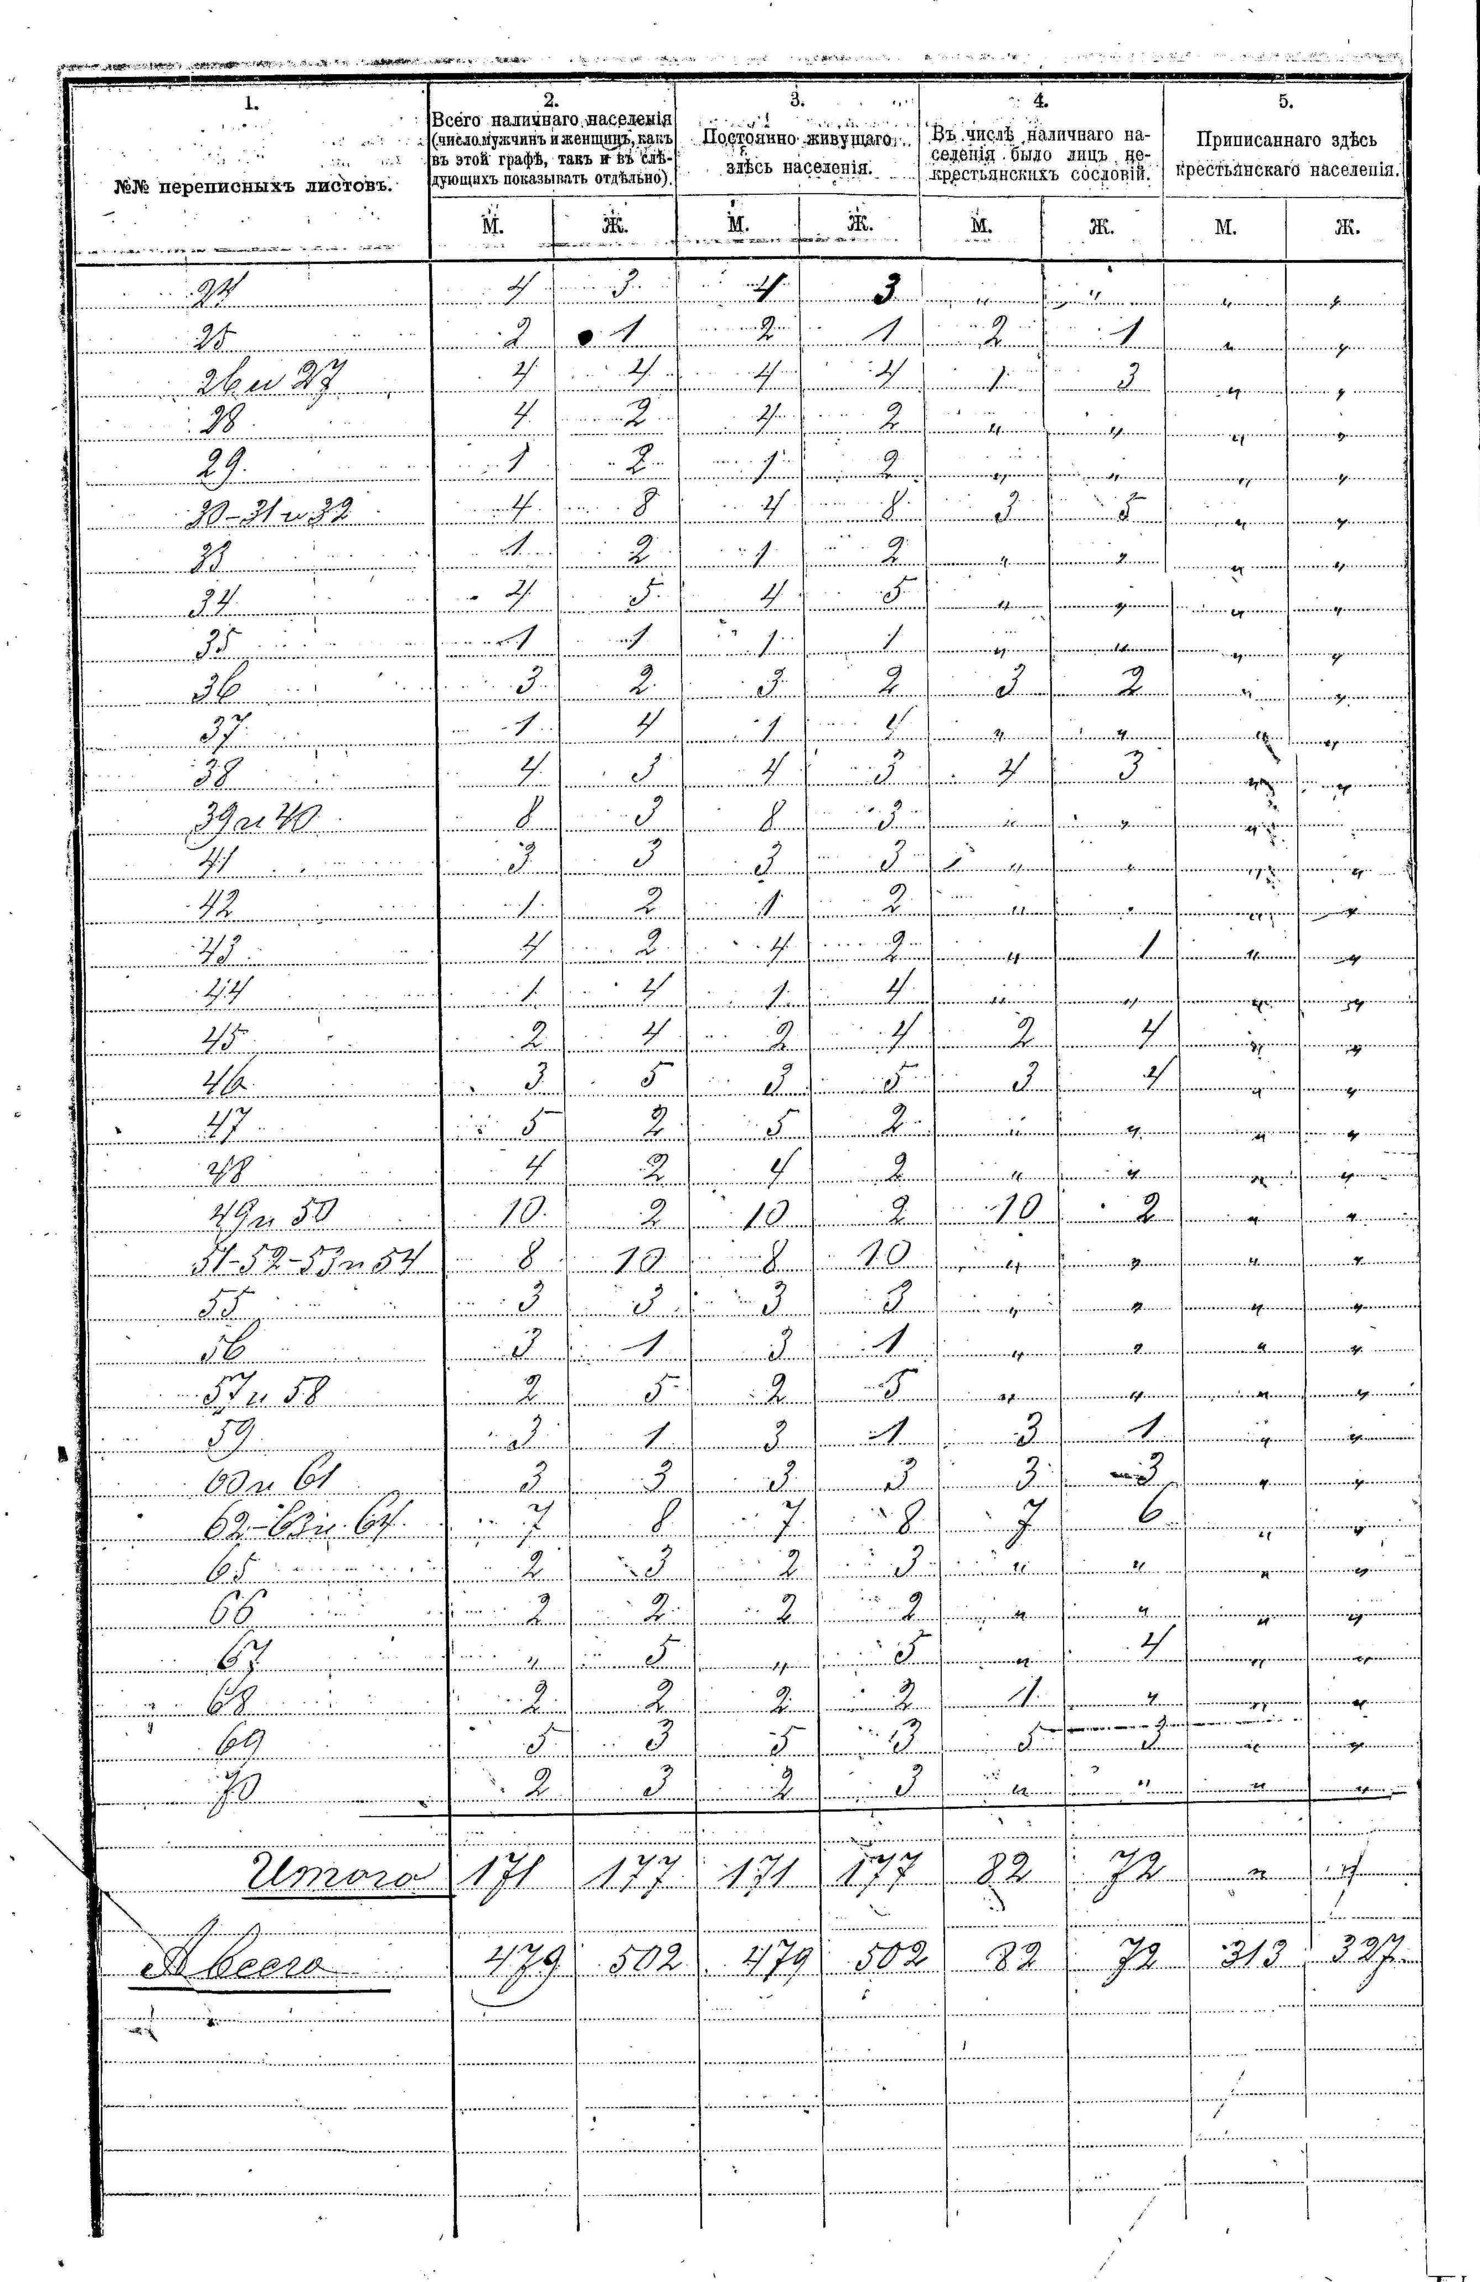 1. 2. 3. 4. 5.
№№ переписныхъ листовъ.
Всего наличнаго населенія
(число мужчинъ и женщинъ, какъ
въ этой графѣ, такъ и въ слѣ-
дующихъ показывать отдѣльно).
Постоянно живущаго
здѣсь населенія.
Въ числѣ наличнаго на-
селенія было лицъ не-
крестьянскихъ сословій.
Приписаннаго здѣсь
крестьянскаго населенія.
М. Ж. М. Ж. М. Ж. М. Ж.
24 4 3 4 3 " " " "
25 2 1 2 1 2 1 " "
26 и 27 4 4 4 4 1 3 " "
28 4 2 4 2 " " " "
29 1 2 1 2 " " " "
30-31 и 32 4 8 4 8 3 5 " "
33 1 2 1 2 " " " "
34 4 5 4 5 " " " "
35 1 1 1 1 " " " "
36 3 2 3 2 3 2 " "
37 1 4 1 4 " " " "
38 4 3 4 3 4 3 " "
39 и 40 8 3 8 3 " " "
41 3 3 3 3 " " " "
42 1 2 1 2 " " " "
43 4 2 4 2 " 1 " "
44 1 4 1 4 " " " "
45 2 4 2 4 2 4 " "
46 3 5 3 5 3 4 " "
47 5 2 5 2 " " " "
48 4 2 4 2 " " " "
49 и 50 10 2 10 2 10 2 " "
51-52-53 и 54 8 10 8 10 " " " "
55 3 3 3 3 " " " "
56 3 1 3 1 " " " "
57 и 58 2 5 2 5 " " " "
59 3 1 3 1 3 1 " "
60 и 61 3 3 3 3 3 3 " "
62-63 и 64 7 8 7 8 7 6 " "
65 2 3 2 3 " " " "
66 2 2 2 2 " " " "
67 " 5 " 5 " 4 " "
68 2 2 2 2 1 " " "
69 5 3 5 3 5 3 " "
70 2 3 2 3 " " " "
Итого 171 177 171 177 82 72 " "
А всего 479 502 479 502 82 72 313 327